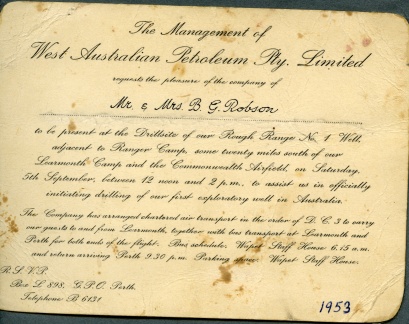 The Management of
West Australian Petroleum Pty. Limited
requests the pleasure of the company of
Mr. & Mrs. B. G. Robson
to be present at the Drillsite of our Rough Range No. 1 Well,
adjacent to Ranger Camp, some twenty miles south of our
Learmonth Camp and the Commonwealth Airfield, on Saturday,
5th September, between 12 noon and 2 p.m., to assist us in officially
initiating drilling of our first exploratory well in Australia.
The Company has arranged chartered air transport in the order of D.C. 3 to carry
our guests to and from Learmonth, together with bus transport at Learmonth and
Perth for both ends of the flight. Bus schedules Wapet Staff House 6.15 a.m.
and return arriving Perth 9.30 p.m. Parking Wapet Staff House.
R.S.V.P.
Box L 898, G.P.O. Perth.
Telephone B 6131
1953